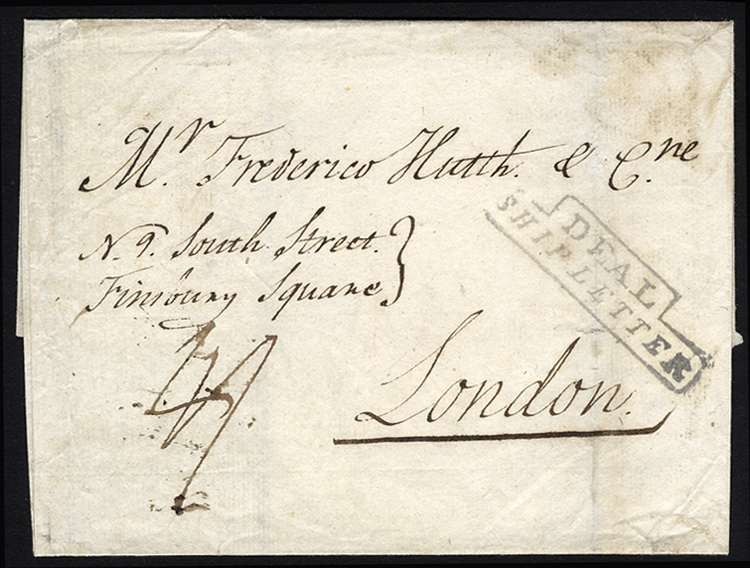 Mr. Frederico Huth. & Cne
N. 9. South Street.
Finsbury Square
London.
DEAL
SHIP LETTER